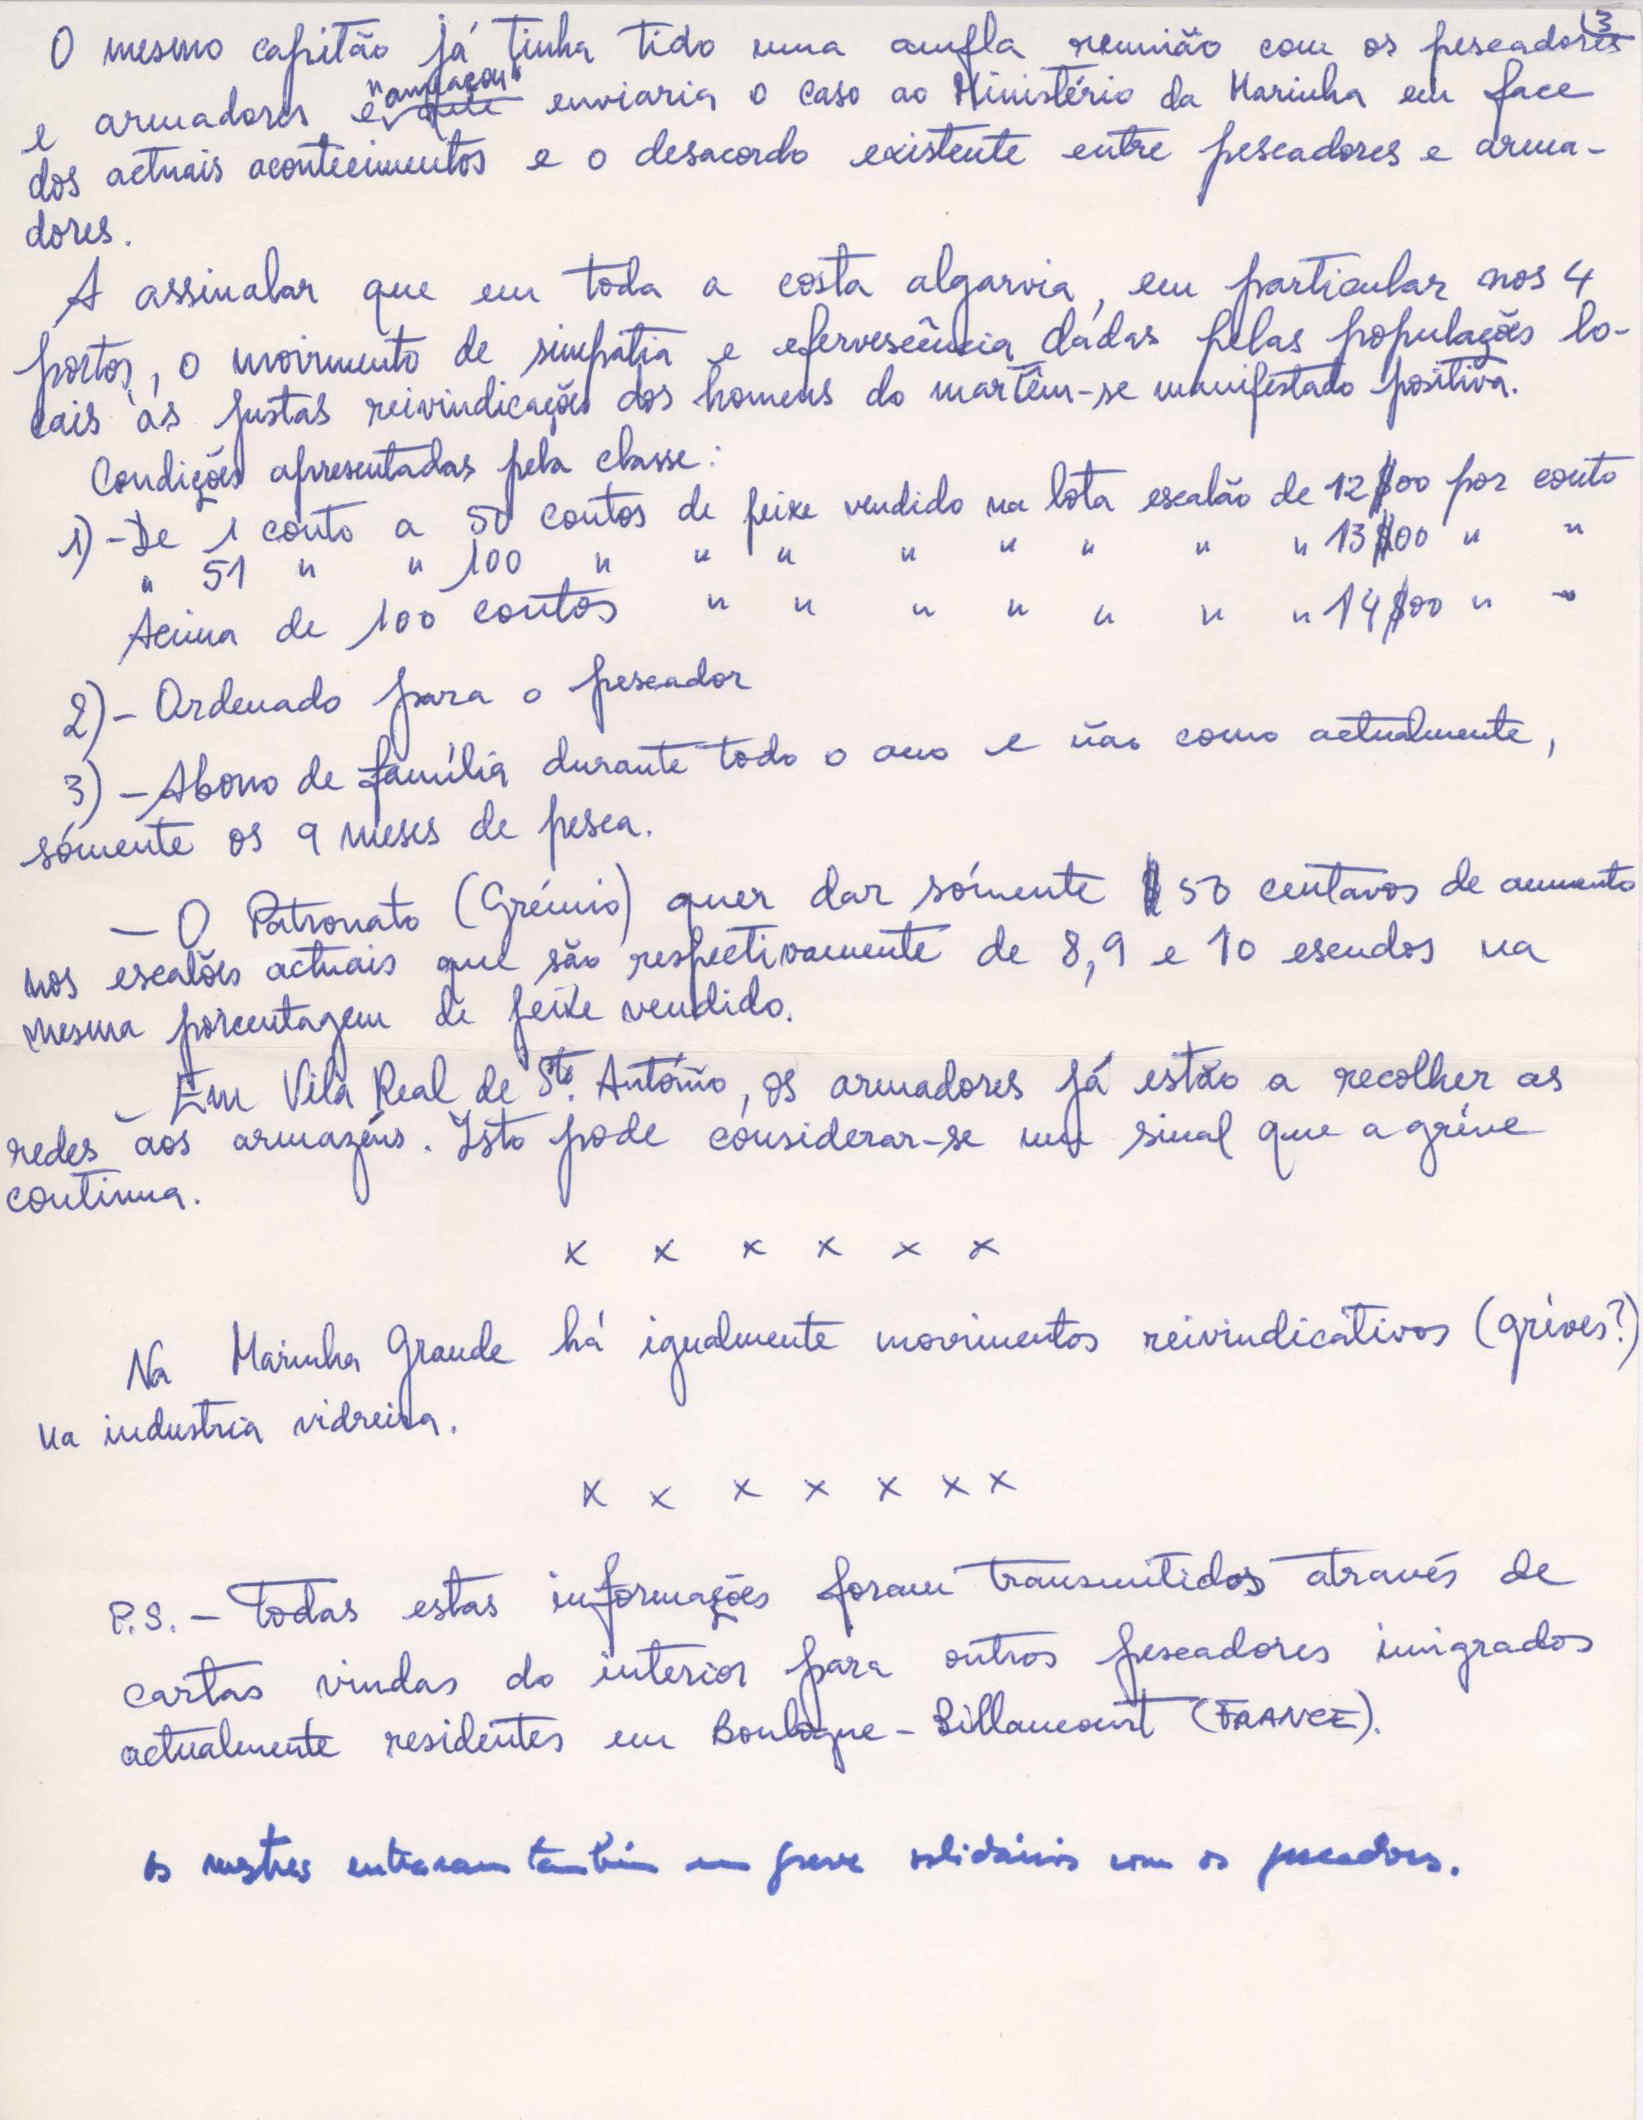 (3
O mesmo capitão já tinha tido uma ampla reunião com os pescadores
e armadores e "ameaçou" que enviaria o caso ao Ministério da Marinha em face
dos actuais acontecimentos e o desacordo existente entre pescadores e arma-
dores.
A assinalar que em toda a costa algarvia, em particular nos 4
portos, o movimento de simpatia e efervescência dadas pelas populações lo-
cais às justas reivindicações dos homens do mar têm-se manifestado positiva.
Condições apresentadas pela classe:
1) - De 1 conto a 50 contos de peixe vendido na lota escalão de 12$00 por conto
" 51 " " 100 " " " " " " " " 13$00 " "
Acima de 100 contos " " " " " " " 14$00 " "
2) - Ordenado para o pescador
3) - Abono de família durante todo o ano e não como actualmente,
sómente os 9 meses de pesca.
- O Patronato (Grémio) quer dar sómente $50 centavos de aumento
nos escalões actuais que são respectivamente de 8, 9 e 10 escudos na
mesma porcentagem de peixe vendido.
- Em Vila Real de Stº. António, os armadores já estão a recolher as
redes aos armazéns. Isto pode considerar-se um sinal que a gréve
continua.
x x x x x x
Na Marinha Grande há igualmente movimentos reivindicativos (gréves?)
na industria vidreira.
x x x x x x x
P.S. - Todas estas informações foram transmitidas através de
cartas vindas do interior para outros pescadores imigrados
actualmente residentes em Boulogne-Billancourt (FRANCE).
os mestres entraram também em greve solidários com os pescadores.